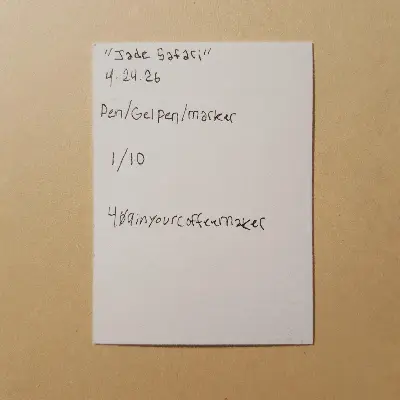 "Jade Safari"
4.24.26
Pen/Gel pen/marker
1/10
409inyourcoffeemaker